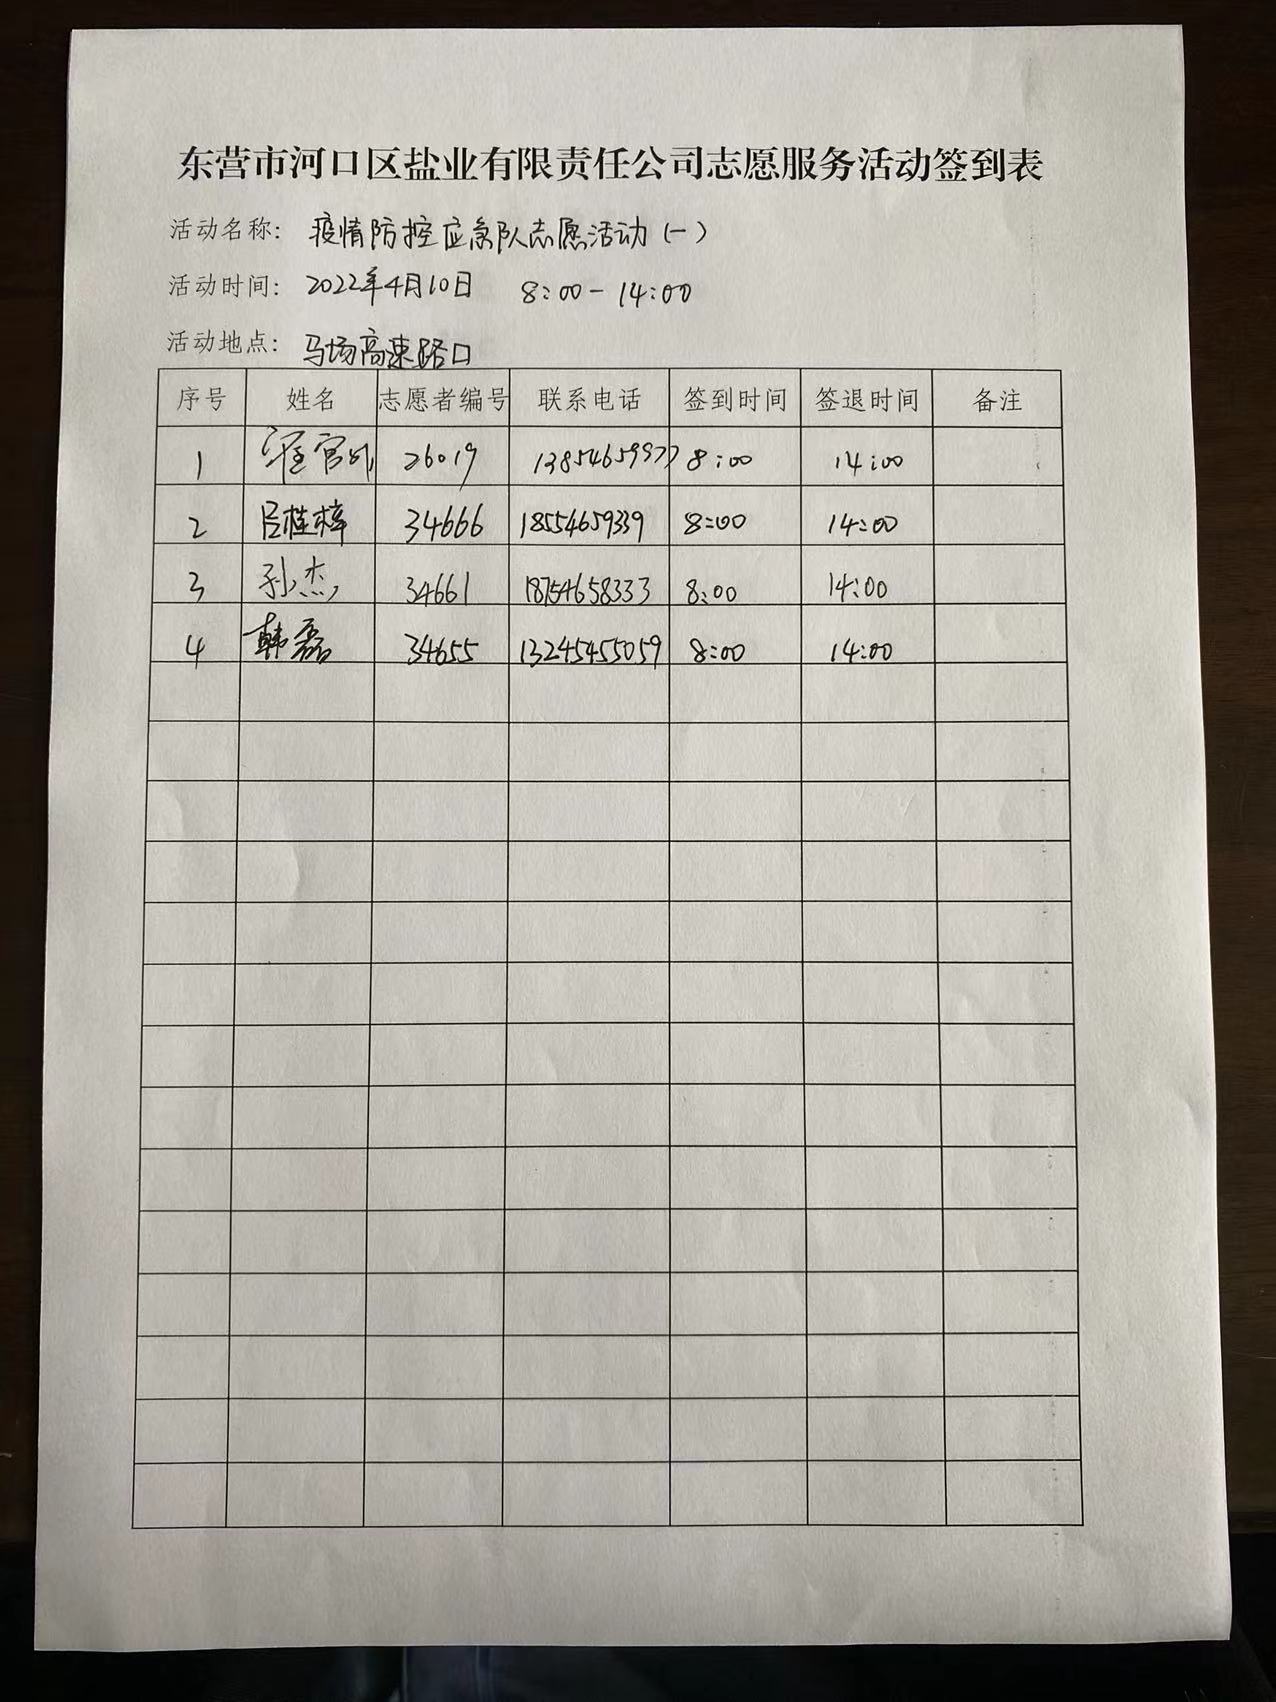 东营市河口区盐业有限责任公司志愿服务活动签到表
活动名称: 疫情防控应急队志愿活动(一)
活动时间: 2022年4月10日 8:00-14:00
活动地点: 马场高速路口
序号 姓名 志愿者编号 联系电话 签到时间 签退时间 备注
1 26019 8:00 14:00
2 吕桂梓 34666 18554659339 8:00 14:00
3 孙杰 34661 18754658333 8:00 14:00
4 韩磊 34655 13245455059 8:00 14:00